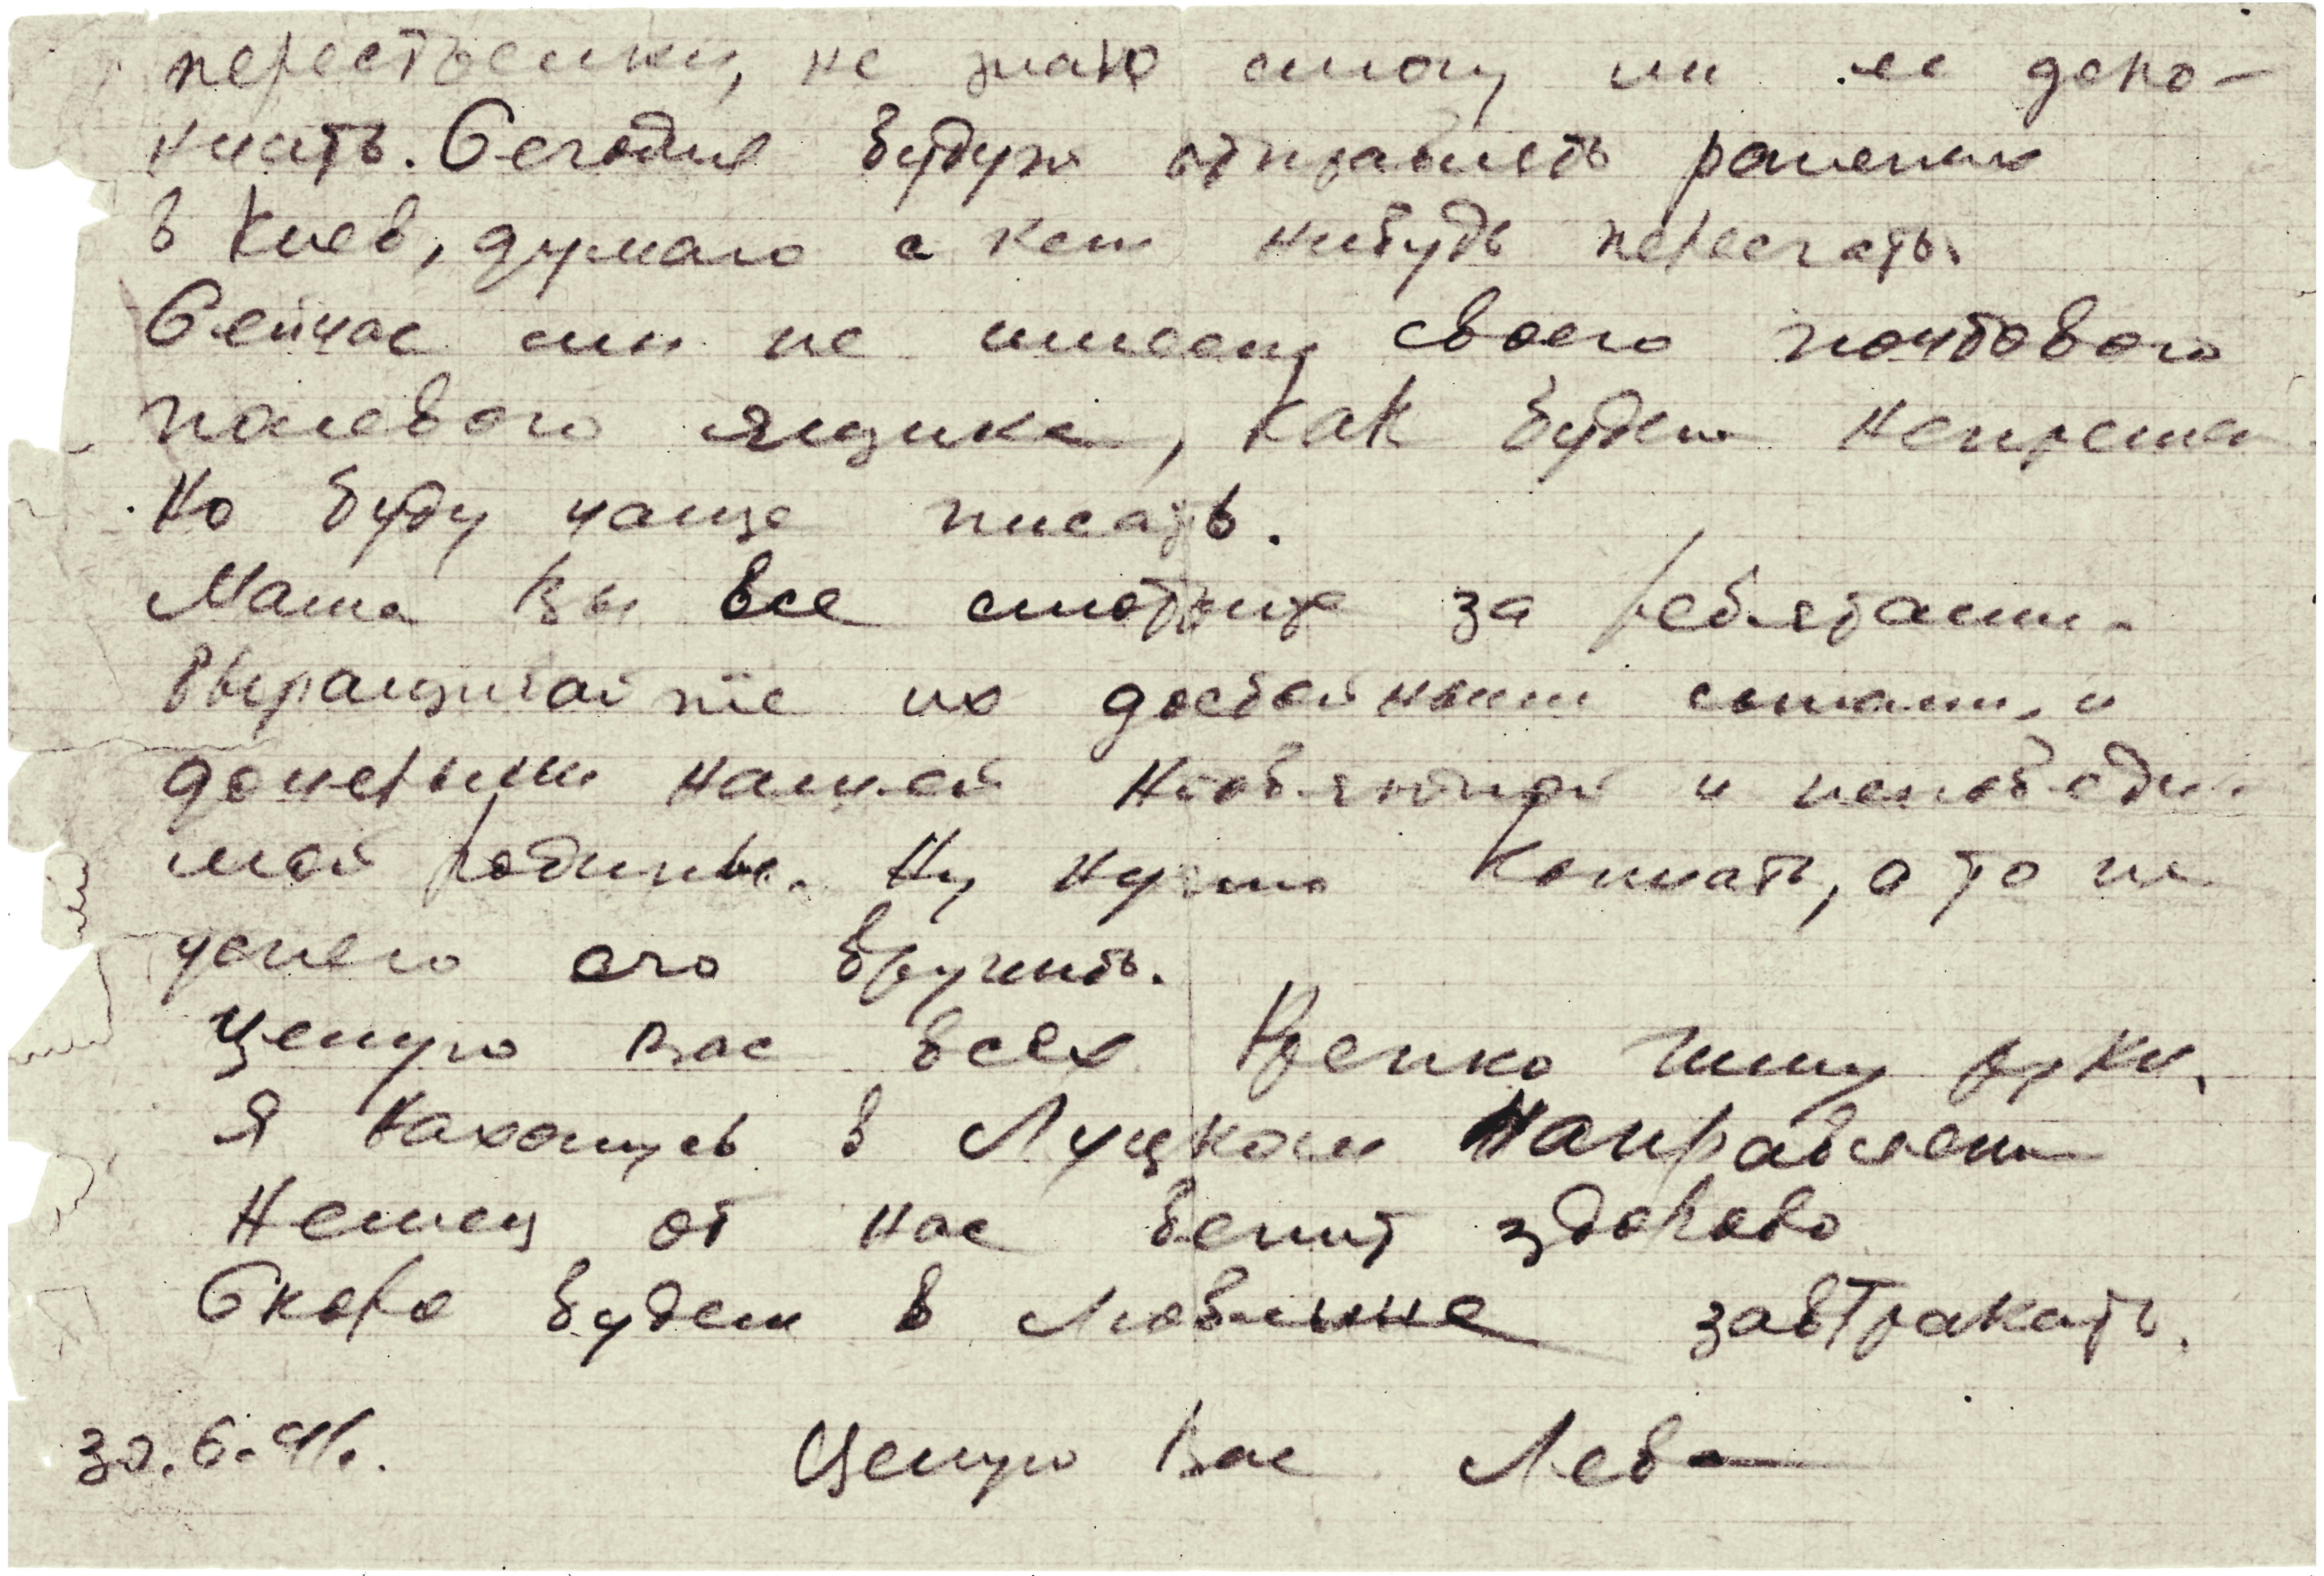 перестрелки, не знаю смогу ли ее допо-
лнить. Сегодня будут отправлять раненых
в Киев, думаю с кем нибудь переслать.
Сейчас мы не имеем своего почтового
полевого ящика, как будем непремен
но буду чаще писать.
Маша Вы все смотрите за ребятами.
Выращивайте их достойными сынами, и
дочерьми нашей необъятной и непобеди-
мой родины. Ну нужно кончать, а то не
успею его вручить.
Целую Вас всех Крепко жму руки.
Я нахожусь в Луцком Направлен
Немец от нас бежит здорово
Скоро будем в Люблине завтракать.
30.6.41.
Целую Вас Лева